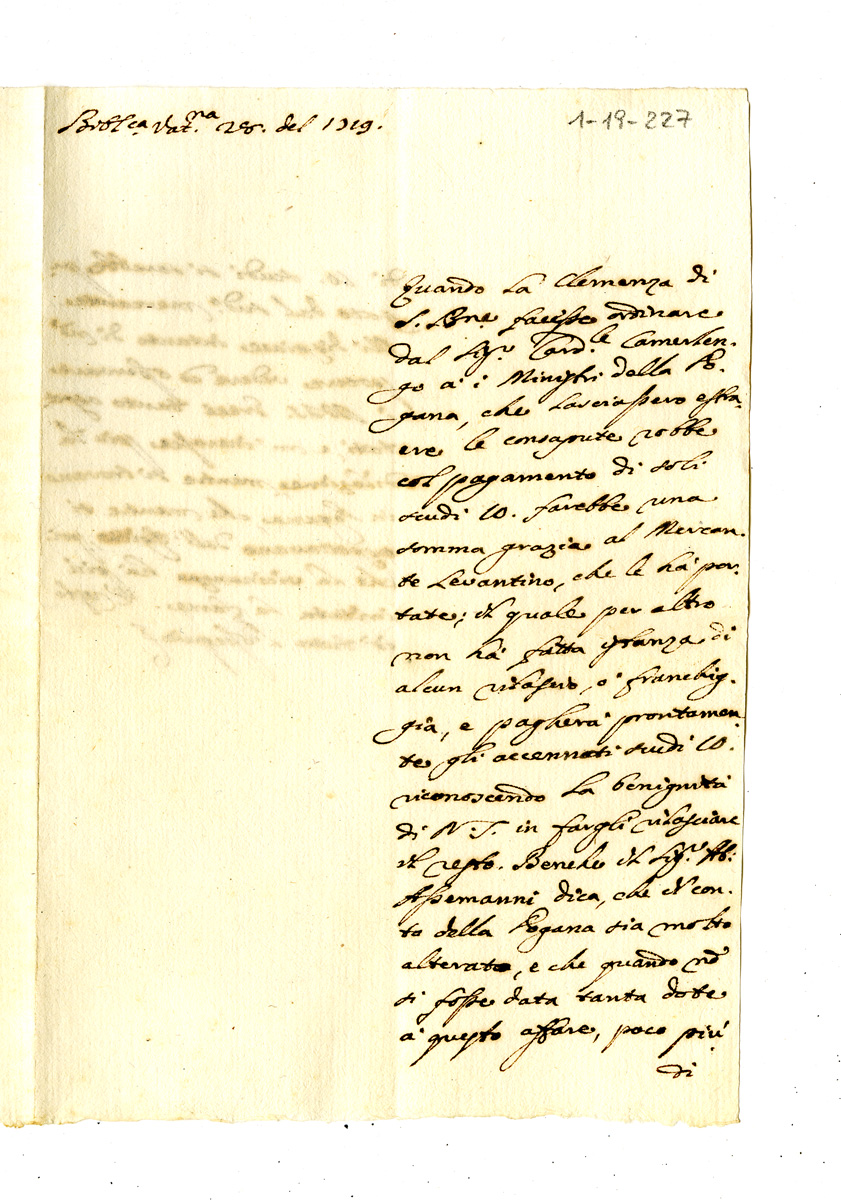 Bibl.ca Vat.na 28. del 1719.
1-19-227
Quando La Clemenza di
S. B.ne facesse ordinare
dal Sig.r Card.le Camerlen.
go a' i Ministri della Do.
gana, che lasciassero estra.
ere le consapute robbe
col pagamento di soli
scudi 10. farebbe una
somma grazia al Mercan.
te Levantino, che le hà por.
tate; il quale per altro
non hà fatta istanza di
alcun rilascio, ò franchig.
gia, e pagherà prontamen.
te gli accennati scudi 10.
riconoscendo La benignità
di N. S. in fargli rilasciare
il resto. Benche il Sig.r Ab.
Assemanni dica, che il con.
to della Dogana sia molto
alterato, e che quando nō
si fosse data tanta dote
à questo affare, poco più
di